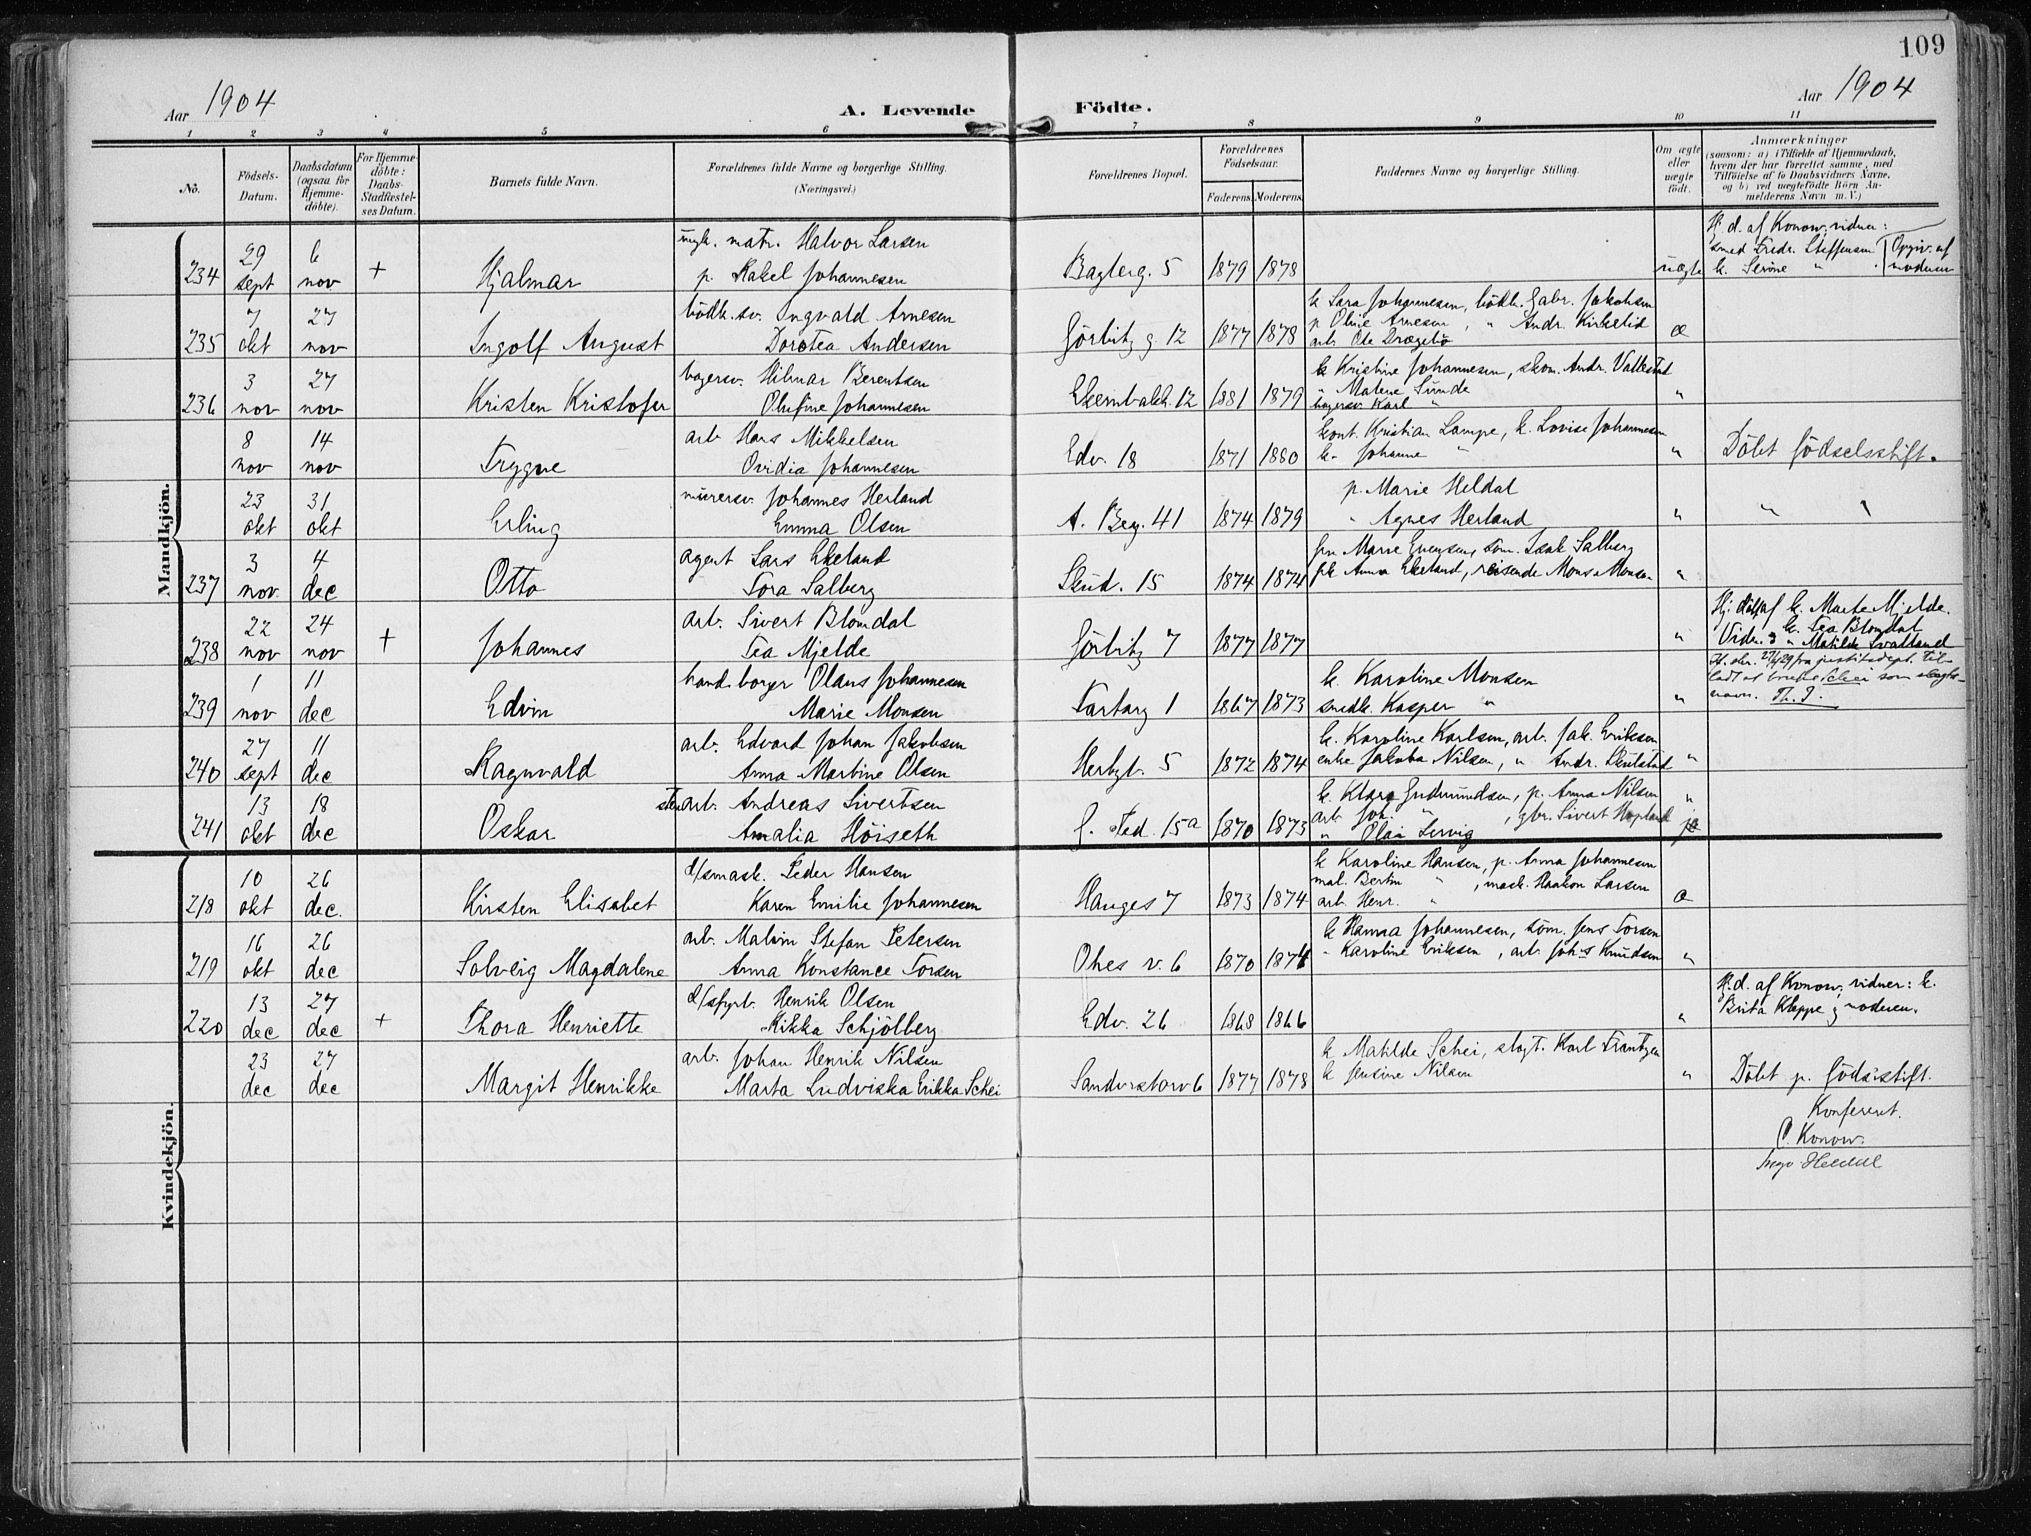 109
Aar 1904
A. Levende Födte.
Aar 1904
1 2 3 4 5 6 7 8 9 10 11
No.
Födsels-Datum.
Daabsdatum (ogsaa for Hjemme-döbte).
For Hjemme-döbte: Daabs-Stadfæstel-ses Datum.
Barnets fulde Navn.
Forældrenes fulde Navne og borgerlige Stilling.
(Næringsvei.)
Forældrenes Bopæl.
Forældrenes Födselsaar.
Faderens. Moderens.
Faddernes Navne og borgerlige Stilling.
Om ægte eller uægte födt.
Anmærkninger
(saasom: a) i Tilfælde af Hjemmedaab,
hvem der har forrettet samme, med
Tilföielse af to Daabsvidners Navne,
og b) ved uægtefödte Börn An-
melderens Navn m. V.)
Mandkjön.
234 29 sept 6 nov + Hjalmar
ungk. matr. Halvor Larsen
p. Rakel Johannesen
Bagterg. 5 1879 1878 uægte
Hj. d. af Konow, vidner:
smed Fredr. Steffensen
k. Serine "
Opgiv. af moderen
235 7 okt 27 nov Ingolf August
bödk.sv. Ingvald Arnesen
Dorotea Andersen
Görbitz g 12 1877 1878
k Sara Johannesen, bödk. Gabr. Jakobsen
p Oline Arnesen, " Andr. Kirketid
arb. Ole Drægebö
æ
236 3 nov 27 nov Kristen Kristofer
bagersv. Hilmar Berentsen
Olufine Johannesen
12 1881 1879
k Kristine Johannesen, skom. Andr. Vallestad
" Matene Sunde
bagersv. Karl "
"
8 nov 14 nov Trygve
arb Hans Mikkelsen
Ovidia Johannesen
Edv. 18 1871 1880
kont. Kristian Lampe, k. Lovise Johannesen
k. Johanne "
"
Döbt födselsstift.
23 okt 31 okt Erling
murersv. Johannes Herland
Emma Olsen
A. Beg. 41 1874 1879
p. Marie Heldal
" Agnes Herland
" " "
237 3 nov. 4 dec Otto
agent Lars Ekeland
Tora Salberg
Skud. 15 1874 1874
fru Marie Evensen, töm. Isak Salberg
frk Anna Ekeland, reisende Mons Monsen
"
238 22 nov 24 nov + Johannes
arb. Sivert Blomdal
Tea Mjelde
Görbitz 7 1877 1877 "
Hj. döbt af k. Marte Mjelde.
Vidner k. Tea Blomdal
" Matilde Svatland
239 1 nov 11 dec Edvin
hand.borger Olaus Johannesen
Marie Monsen
Tartarg 1 1867 1873
k. Karoline Monsen
smedk. Kasper "
"
justitsdept. til-
ladt at bruke Schei som slægts-
navn.
240 27 sept 11 dec Ragnvald
arb. Edvard Johan Jakobsen
Anna Martine Olsen
5 1872 1874
k. Karoline Karlsen, arb. Jak. Eriksen
enke Jakoba Nilsen, " Andr. Skulstad
"
241 13 okt 18 dec Oskar
arb. Andreas Sivertsen
Amalia Höiseth
15a 1870 1873
k. Klara Gudmundsen, p. Anna Nilsen
arb Joh. " , gbr. Sivert Hopland
" Olai Servig
"
Kvindekjön.
218 10 okt 26 dec. Kirsten Elisabet
d/smask. Peder Hansen
Karen Emilie Johannesen
Hauges 7 1873 1874
k Karoline Hansen, p. Anna Johannesen
mal. Bertin " , mask. Haakon Larsen
arb Henr. "
æ
219 16 okt 26 dec Solveig Magdalene
arb. Malvin Stefan Petersen
Anna Konstance Torsen
Ohes v. 6 1870 1876
k Hanna Johannesen, töm. Jens Torsen
" Karoline Eriksen, arb. Johs Knudsen
"
220 13 dec 27 dec + Thora Henriette
d/sfyrb. Henrik Olsen
Rikka Schjölberg
Edv. 26 1868 1866 "
Hj. d. af Konow, vidner: k.
Brita Kleppe g moderen.
23 dec 27 dec Margit Henrikke
arb. Johan Henrik Nilsen
Marta Ludviska Erikka Schei
6 1877 1878
k Matilde Schei, slagt. Karl Frantzen
k Jensine Nilsen
"
Döbt p. födsstift.
Konfereret.
C. Konow.